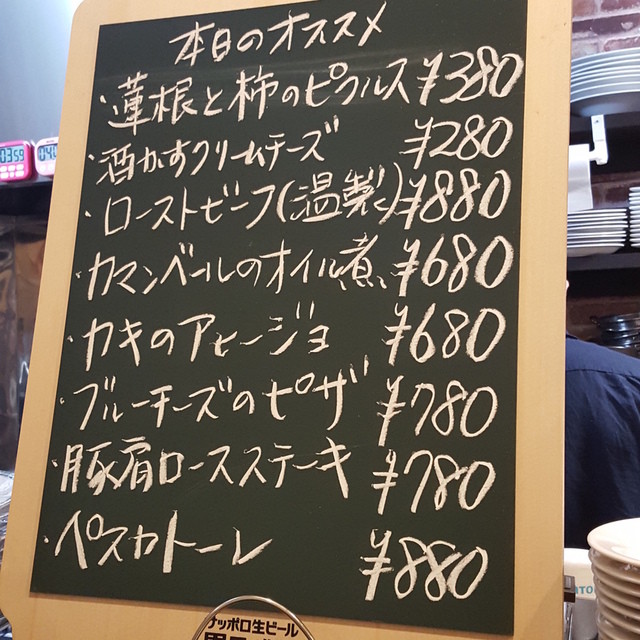 本日のオススメ
・蓮根と柿のピクルス ¥380
・酒かすクリームチーズ ¥280
・ローストビーフ(温製) ¥880
・カマンベールのオイル煮 ¥680
・カキのアヒージョ ¥680
・ブルーチーズのピザ ¥780
・豚肩ロースステーキ ¥780
・ペスカトーレ ¥880
サッポロ生ビール